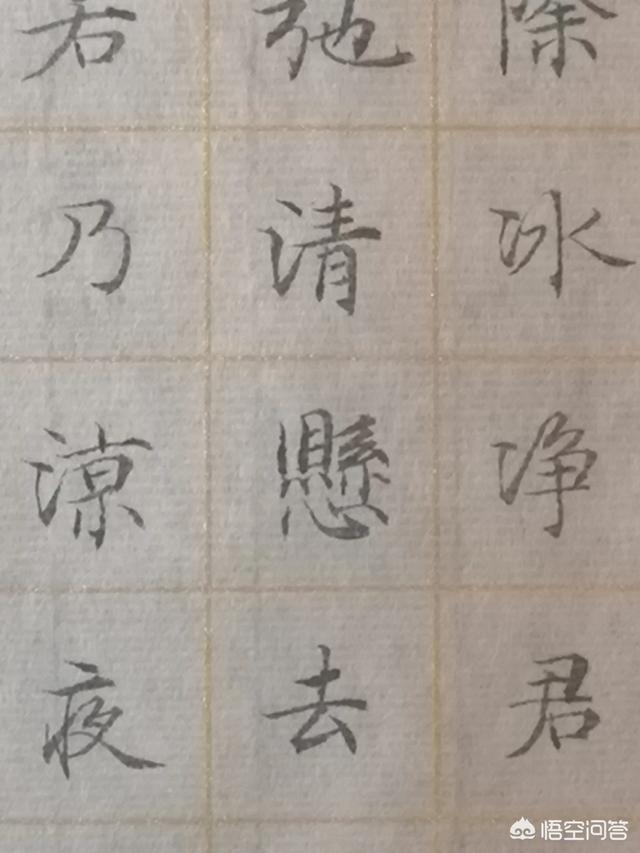 除冰净君
弛清懸去
若乃涼夜
悟空问答